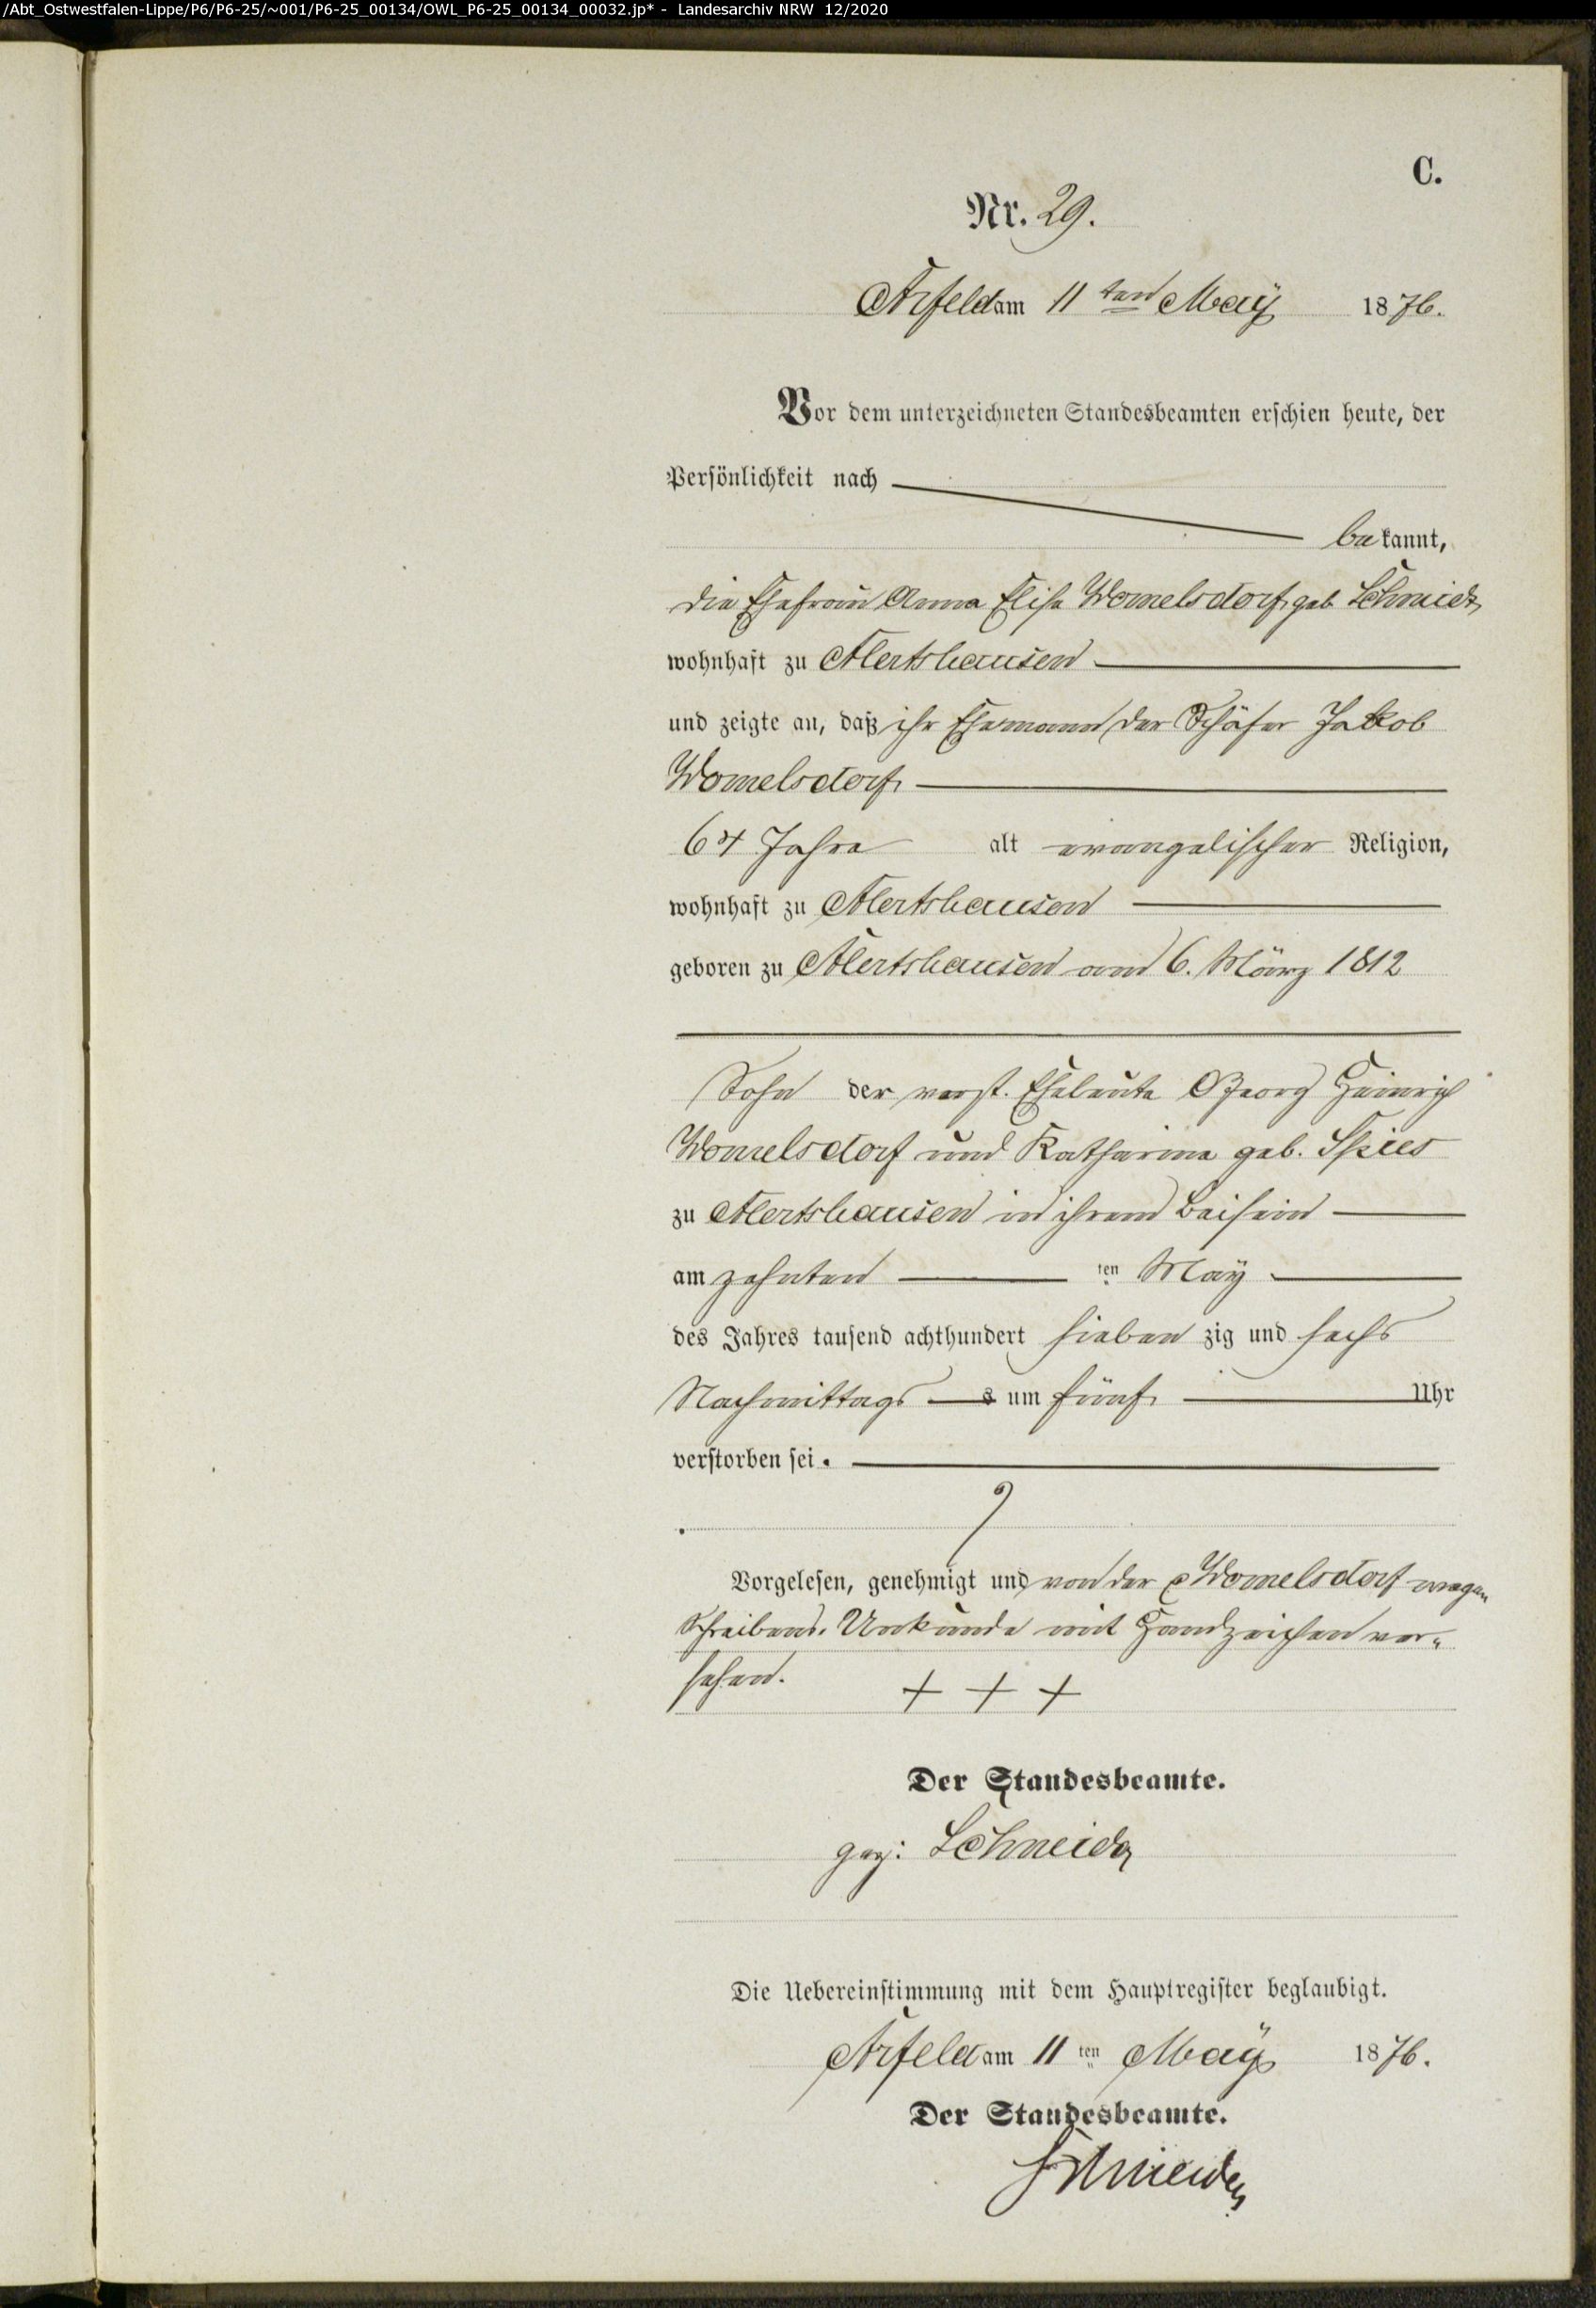 /Abt_Ostwestfalen-Lippe/P6/P6-25/~001/P6-25_00134/OWL_P6-25_00134_00032.jp* - Landesarchiv NRW 12/2020
C.
Nr. 29.
Arfeld am 11 ten May 1876.
Vor dem unterzeichneten Standesbeamten erschien heute, der
Persönlichkeit nach
bekannt,
die Ehefrau Anna Elise Womelsdorf, geb Schmidt,
wohnhaft zu Alertshausen
und zeigte an, daß ihr Ehemann der Schäfer Jakob
Womelsdorf,
64 Jahre alt evangelischer Religion,
wohnhaft zu Alertshausen
geboren zu Alertshausen am 6. März 1812
Sohn der verst. Eheleute Georg Heinrich
Womelsdorf und Katharina geb. Spies
zu Alertshausen in ihrem Beisein
am zehnten ten May
des Jahres tausend achthundert sieben zig und sechs
Nachmittags s um fünf Uhr
verstorben sei.
Vorgelesen, genehmigt und von der Womelsdorf wegen
Schreibens. Unkunde mit Handzeichen ver-
sehen. + + +
Der Standesbeamte.
gez: Schneider
Die Uebereinstimmung mit dem Hauptregister beglaubigt.
Arfeld am 11 ten May 1876.
Der Standesbeamte.
Schneider